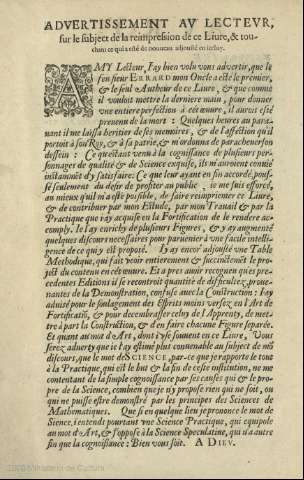 ADVERTISSEMENT AV LECTEVR,
sur le subject de la reimpression de ce Liure, & tou-
chant ce qui a esté de nouueau adiousté en iceluy.
AMY Lecteur, I'ay bien voulu vous aduertir, que le
feu sieur ERRARD mon Oncle a esté le premier,
& le seul Autheur de ce Liure, & que comme
il vouloit mettre la derniere main, pour donner
vne entiere perfection à cét œuure, il auroit esté
preuenu de la mort: Quelques heures au para-
uant il me laissa heritier de ses memoires, & de l'affection qu'il
portoit à son Roy, & à sa patrie, & m'ordonna de paracheuer son
dessein: Ce qu'estant venu à la cognoissance de plusieurs per-
sonnages de qualité & de Science exquise, ils m'auroient conuié
instãmẽt d'y satisfaire. Ce que leur ayant en fin accordé, pous-
sé seulement du desir de profiter au public, ie me suis efforcé,
au mieux qu'il m'a esté possible, de faire reimprimer ce Liure,
& de contribuer par mon Estude, par mon Trauail & par la
Practique que i'ay acquise en la Fortification de le rendre ac-
comply. Ie l'ay enrichy de plusieurs Figures, & y ay augmenté
quelques discours necessaires pour paruenir à vne facile intelli-
gence de ce qui y est proposé. I'ay encor' adiousté vne Table
Methodique, qui fait veoir entierement & succinctemẽt le pro-
ject du contenu en cét œuure. Et apres auoir recogneu que és pre-
cedentes Editions il se rencontroit quantité de difficultez, proue-
nantes de la Demonstration, confuse auec la Construction: I'ay
aduisé pour le soulagement des Esprits moins versez en l'Art de
Fortificatiõ, & pour decembrasser celuy de l'Apprenty, de met-
tre à part la Construction, & d'en faire chacune Figure separée.
Et quant au mot d'Art, dont i'vse souuent en ce Liure, Vous
serez aduerty que ie l'ay estimé plus conuenable au subject de mõ
discours, que le mot de SCIENCE, par-ce que ie rapporte le tout
à la Practique, qui est le but & la fin de ceste institution, ne me
contentant de la simple cognoissance par ses causes qui est le pro-
pre de la Science, combien que ie n'y propose rien qui ne soit, ou
qui ne puisse estre demonstré par les principes des Sciences de
Mathematiques. Que si en quelque lieu ie prononce le mot de
Sience, i'entends pourtant vne Science Practique, qui equipole
au mot d'Art, & s'oppose à la Science Speculatiue, qui n'a autre
fin que la cognoissance: Bien vous soit. A DIEV.
2009 Ministerio de Cultura